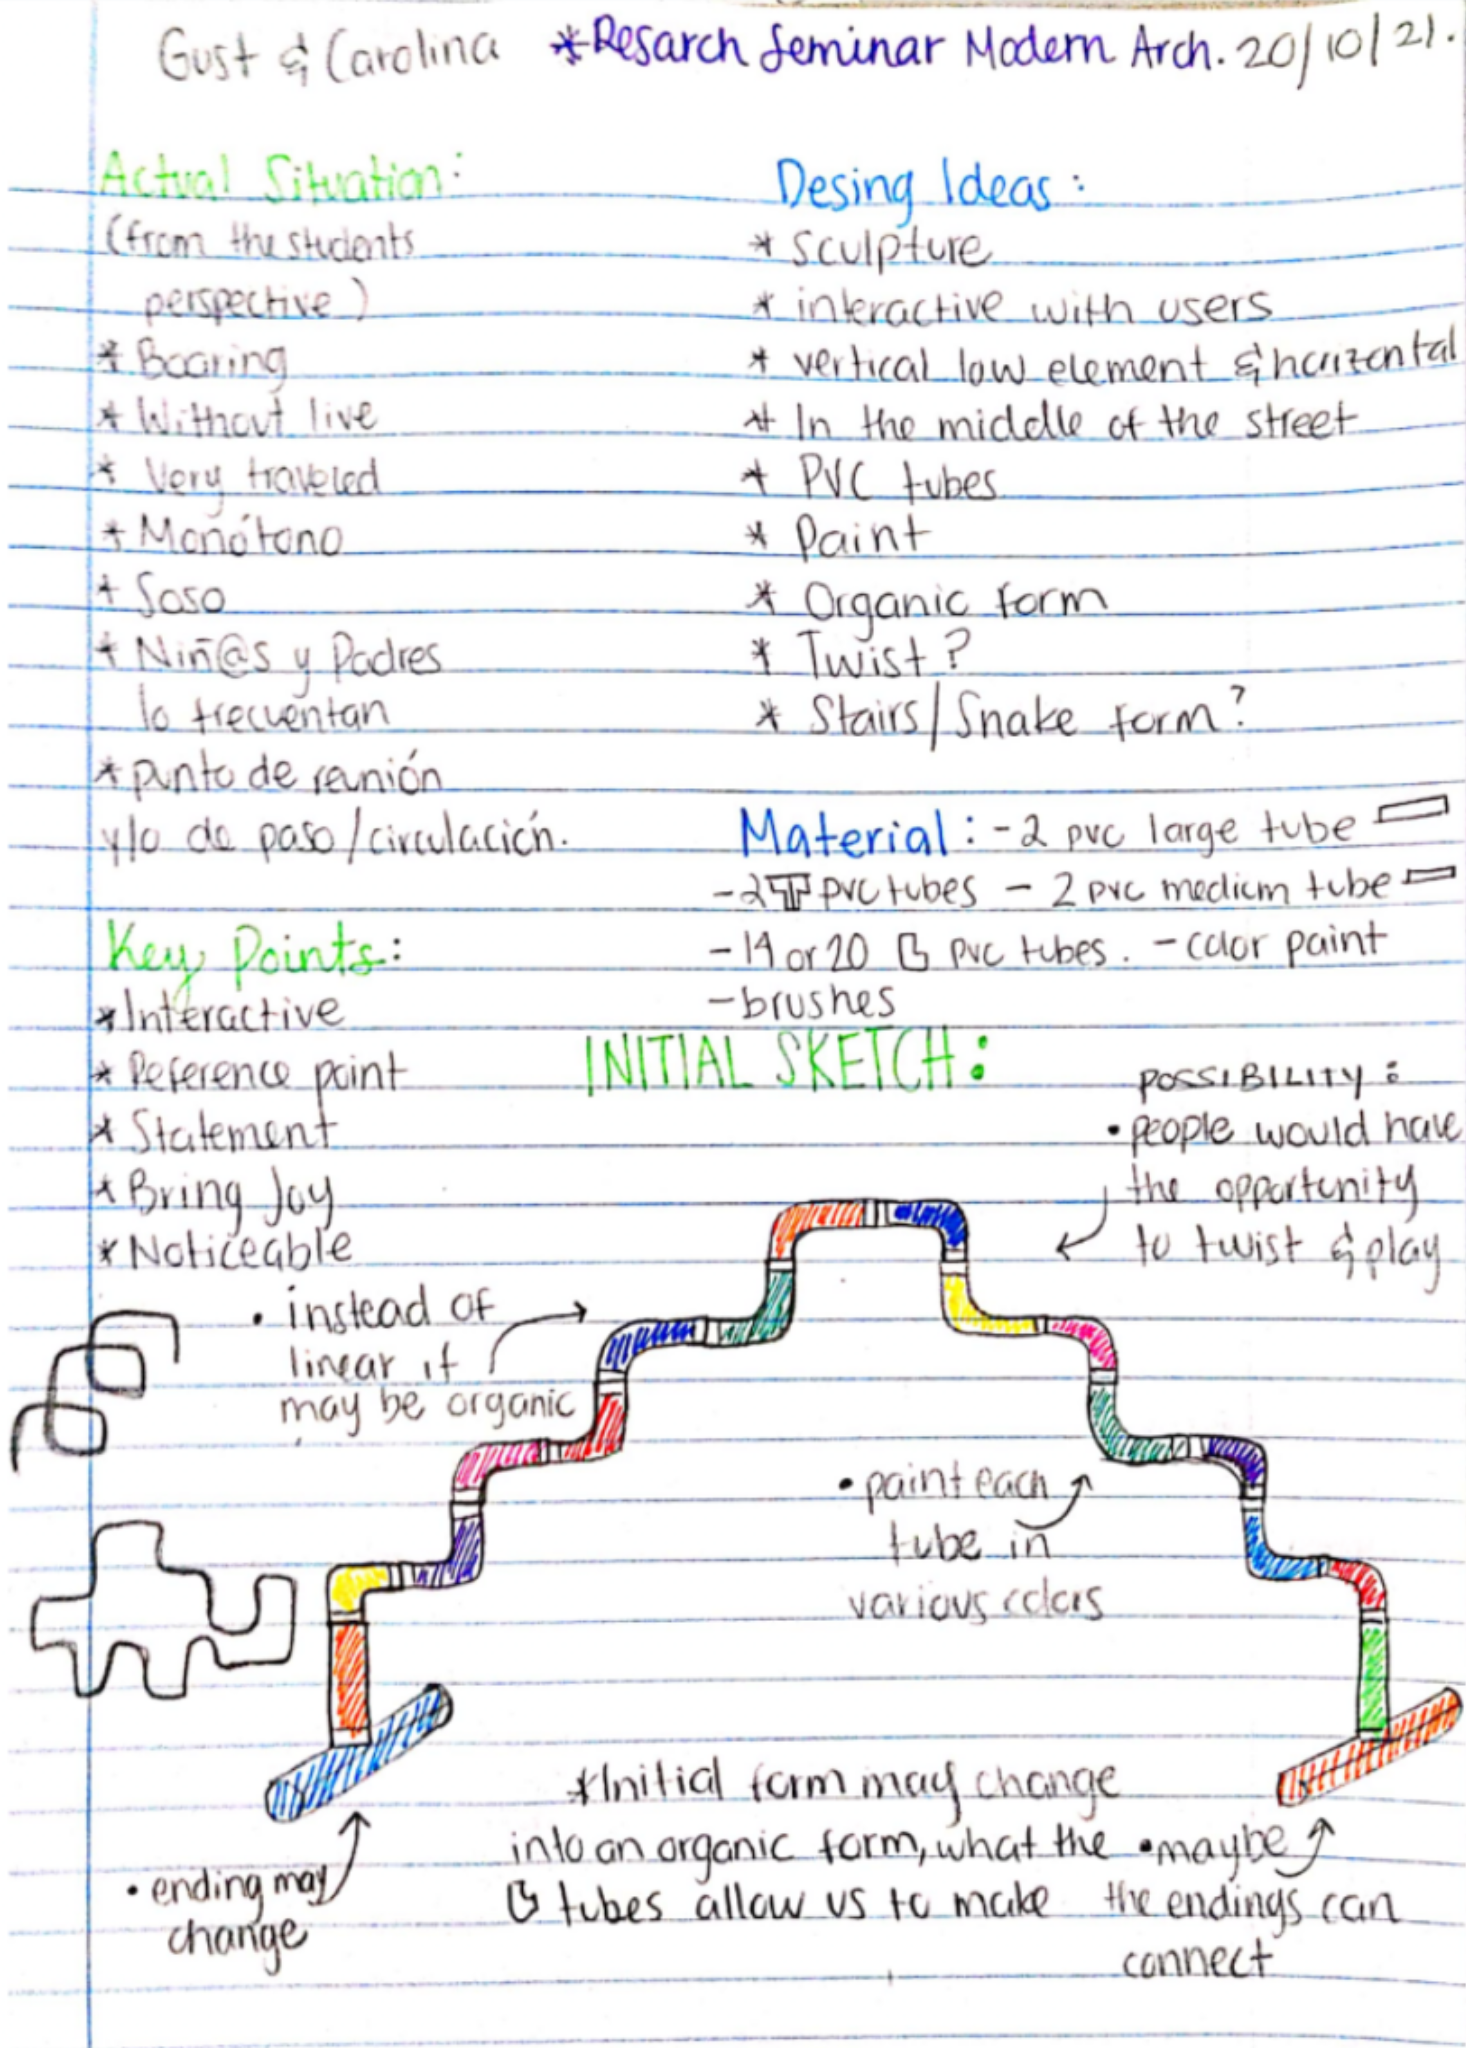 Gust & Carolina *Resarch Seminar Modern Arch. 20/10/21.
Actual Situation:
(from the students
perspective)
* Booring
* Without live
* Very traveled
* Monótono
* Soso
* Niñ@s y Padres
lo frecuentan
* punto de reunión
y/o de paso/circulación.
Key Points:
* Interactive
* Reference point
* Statement
* Bring Joy
* Noticeable
Desing Ideas:
* Sculpture
* interactive with users
* vertical low element & horizontal
* In the middle of the street
* PVC tubes
* Paint
* Organic form
* Twist?
* Stairs/Snake form?
Material: - 2 pvc large tube
- 2 pvc tubes - 2 pvc medium tube
- 19 or 20 pvc tubes. - color paint
- brushes
INITIAL SKETCH:
POSSIBILITY:
• people would have
the opportunity
to twist & play
• instead of
linear it
may be organic
• paint each
tube in
various colors
*Initial form may change
into an organic form, what the
tubes allow us to make
• maybe
the endings can
connect
• ending may
change